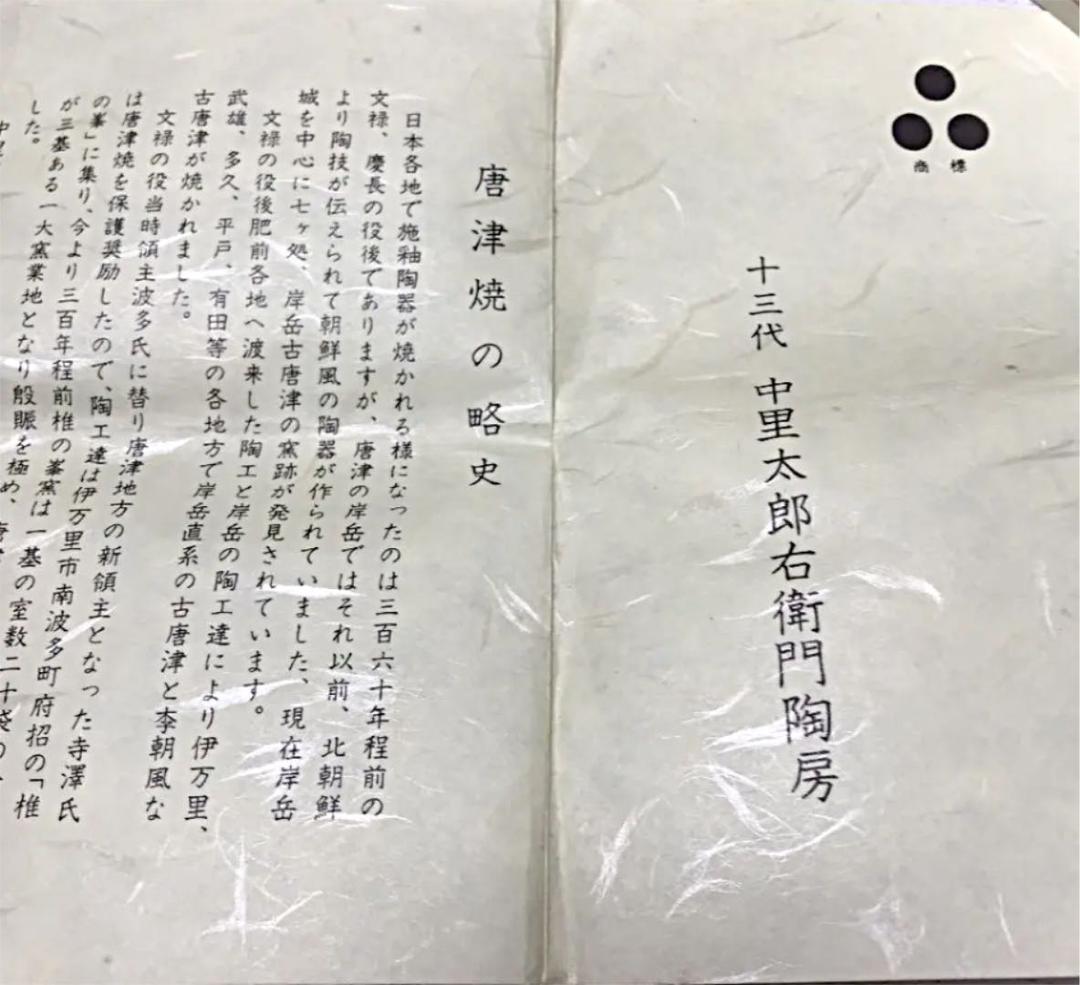 商標
十三代 中里太郎右衛門陶房
唐津焼の略史
日本各地で施釉陶器が焼かれる様になったのは三百六十年程前の
文禄、慶長の役後でありますが、唐津の岸岳ではそれ以前、北朝鮮
より陶技が伝えられて朝鮮風の陶器が作られていました、現在岸岳
城を中心に七ヶ処、岸岳古唐津の窯跡が発見されています。
文禄の役後肥前各地へ渡来した陶工と岸岳の陶工達により伊万里、
武雄、多久、平戸、有田等の各地方で岸岳直系の古唐津と李朝風な
古唐津が焼かれました。
文禄の役当時領主波多氏に替り唐津地方の新領主となった寺澤氏
は唐津焼を保護奨励したので、陶工達は伊万里市南波多町府招の「椎
の峯」に集り、今より三百年程前椎の峯窯は一基の室数二十袋の
が三基ある一大窯業地となり殷賑を極め、
した。